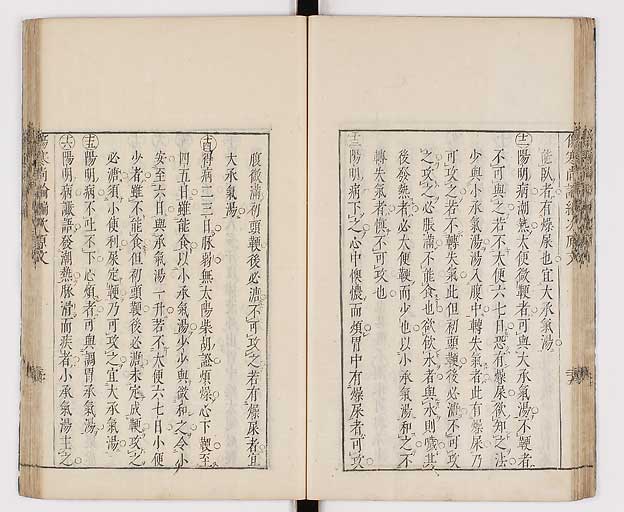 能臥者有燥屎也宜大承氣湯
十二陽明病潮熱大便微鞕者可與大承氣湯不鞕者
不可與之若不大便六七日恐有燥屎欲知之法
少與小承氣湯湯入腹中轉失氣者此有燥屎乃
可攻之若不轉失氣此但初頭鞕後必溏不可攻
之攻之必脹滿不能食也欲飲水者與水則噦其
後發熱者必大便鞕而少也以小承氣湯和之不
轉失氣者慎不可攻也
十三陽明病下之心中懊憹而煩胃中有燥屎者可攻
腹微滿初頭鞕後必溏不可攻之若有燥屎者宜
大承氣湯
十四得病二三日脉弱無太陽柴胡證煩燥心下鞕至
四五日雖能食以小承氣湯少少與微和之令小
安至六日與承氣湯一升若不大便六七日小便
少者雖不能食但初頭鞕後必溏未定成鞕攻之
必溏須小便利屎定鞕乃可攻之宜大承氣湯
十五陽明病不吐不下心煩者可與調胃承氣湯
十六陽明病讝語發潮熱脉滑而疾者小承氣湯主之
傷寒尚論編次原文